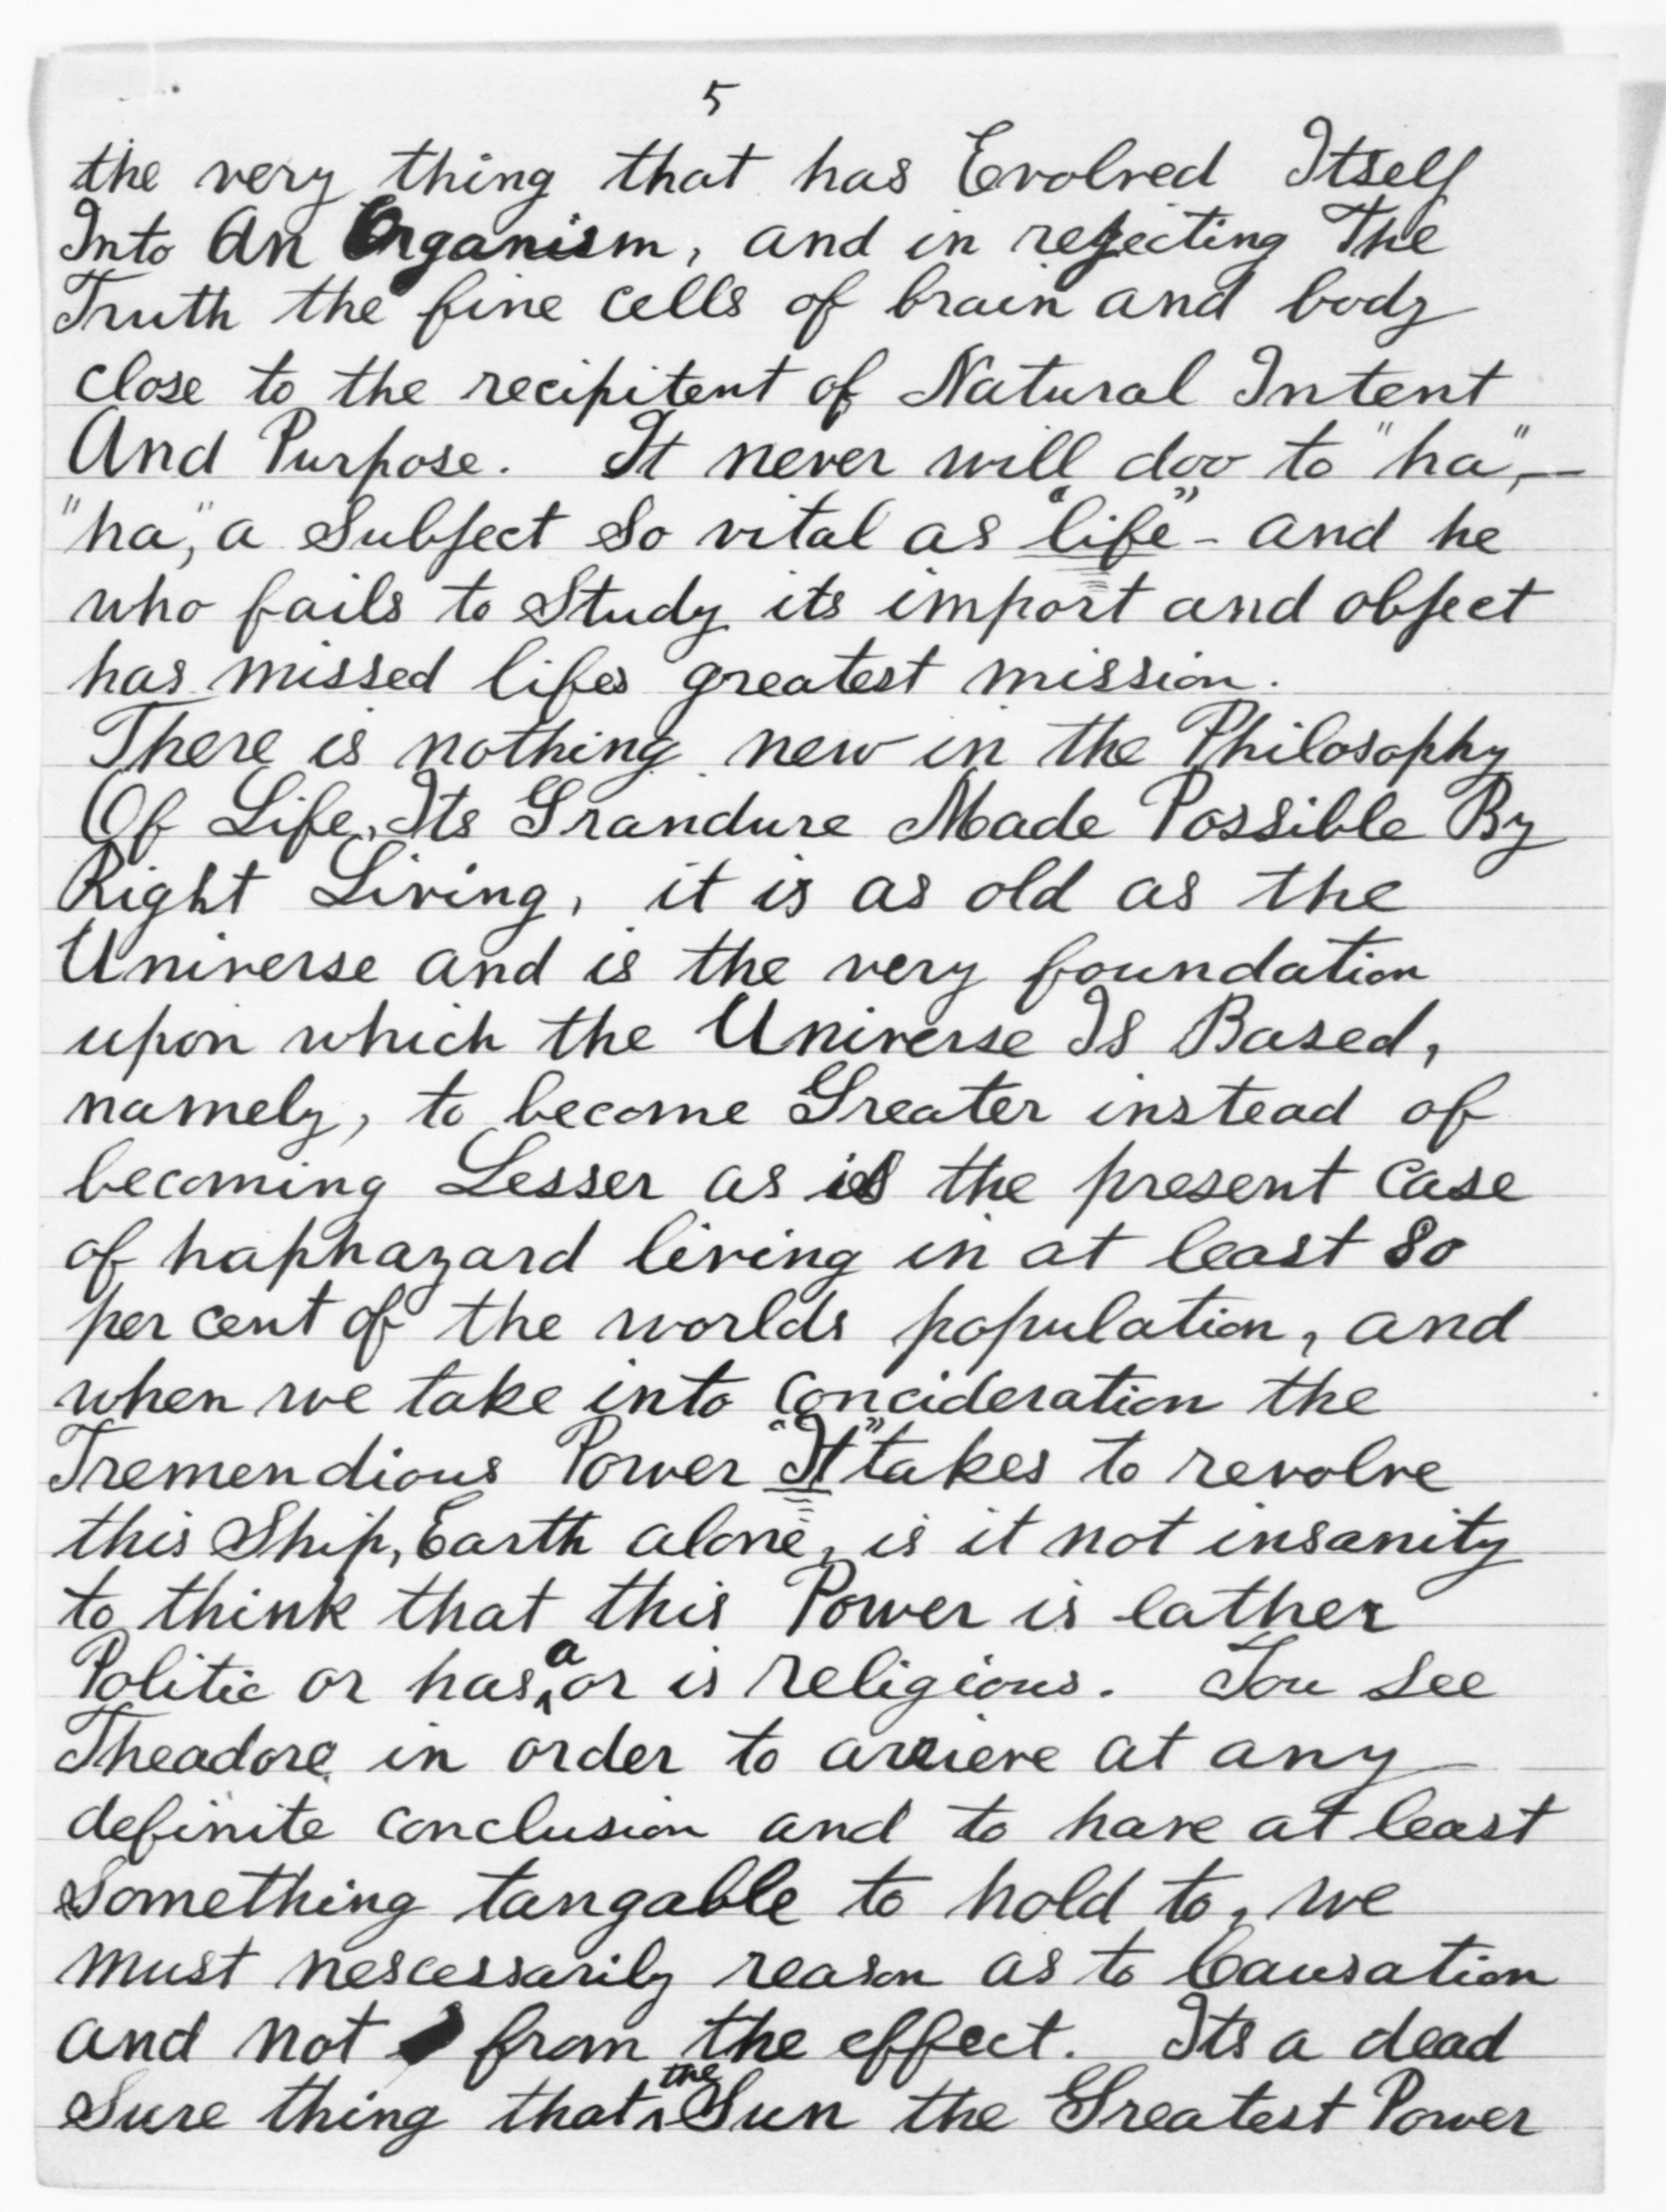 5
the very thing that has Evolved Itself
Into An Organism, and in rejecting The
Truth the fine cells of brain and body
close to the recipitent of Natural Intent
And Purpose. It never will doo to "ha",—
"ha," a Subject So vital as "life" - and he
who fails to Study its import and object
has missed lifes greatest mission.
There is nothing new in the Philosophy
Of Life, Its Grandure Made Possible By
Right Living, it is as old as the
Universe and is the very foundation
upon which the Universe Is Based,
namely, to become Greater instead of
becoming Lesser as is the present case
of haphazard living in at least 80
per cent of the worlds population, and
when we take into concideration the
Tremendious Power "It" takes to revolve
this Ship, Earth alone, is it not insanity
to think that this Power is eather
Politic or has, a or is religious. You see
Theadore in order to arrieve at any
definite conclusion and to have at least
Something tangable to hold to, we
must nescessarily reason as to Causation
and not from the effect. Its a dead
Sure thing that the Sun the Greatest Power